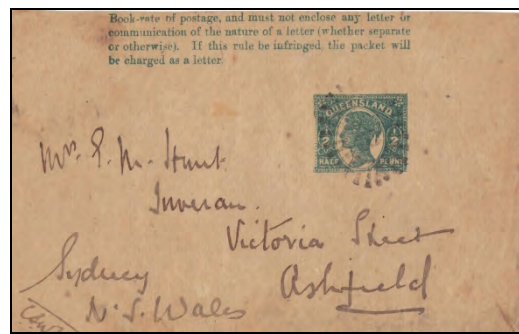 Book-rate of postage, and must not enclose any letter or
communication of the nature of a letter (whether separate
or otherwise). If this rule be infringed, the packet will
be charged as a letter
QUEENSLAND
½ ½
HALF PENNY
Mrs. E. M. Hunt
Inveran.
Victoria Street
Ashfield
Sydney
N. S. Wales